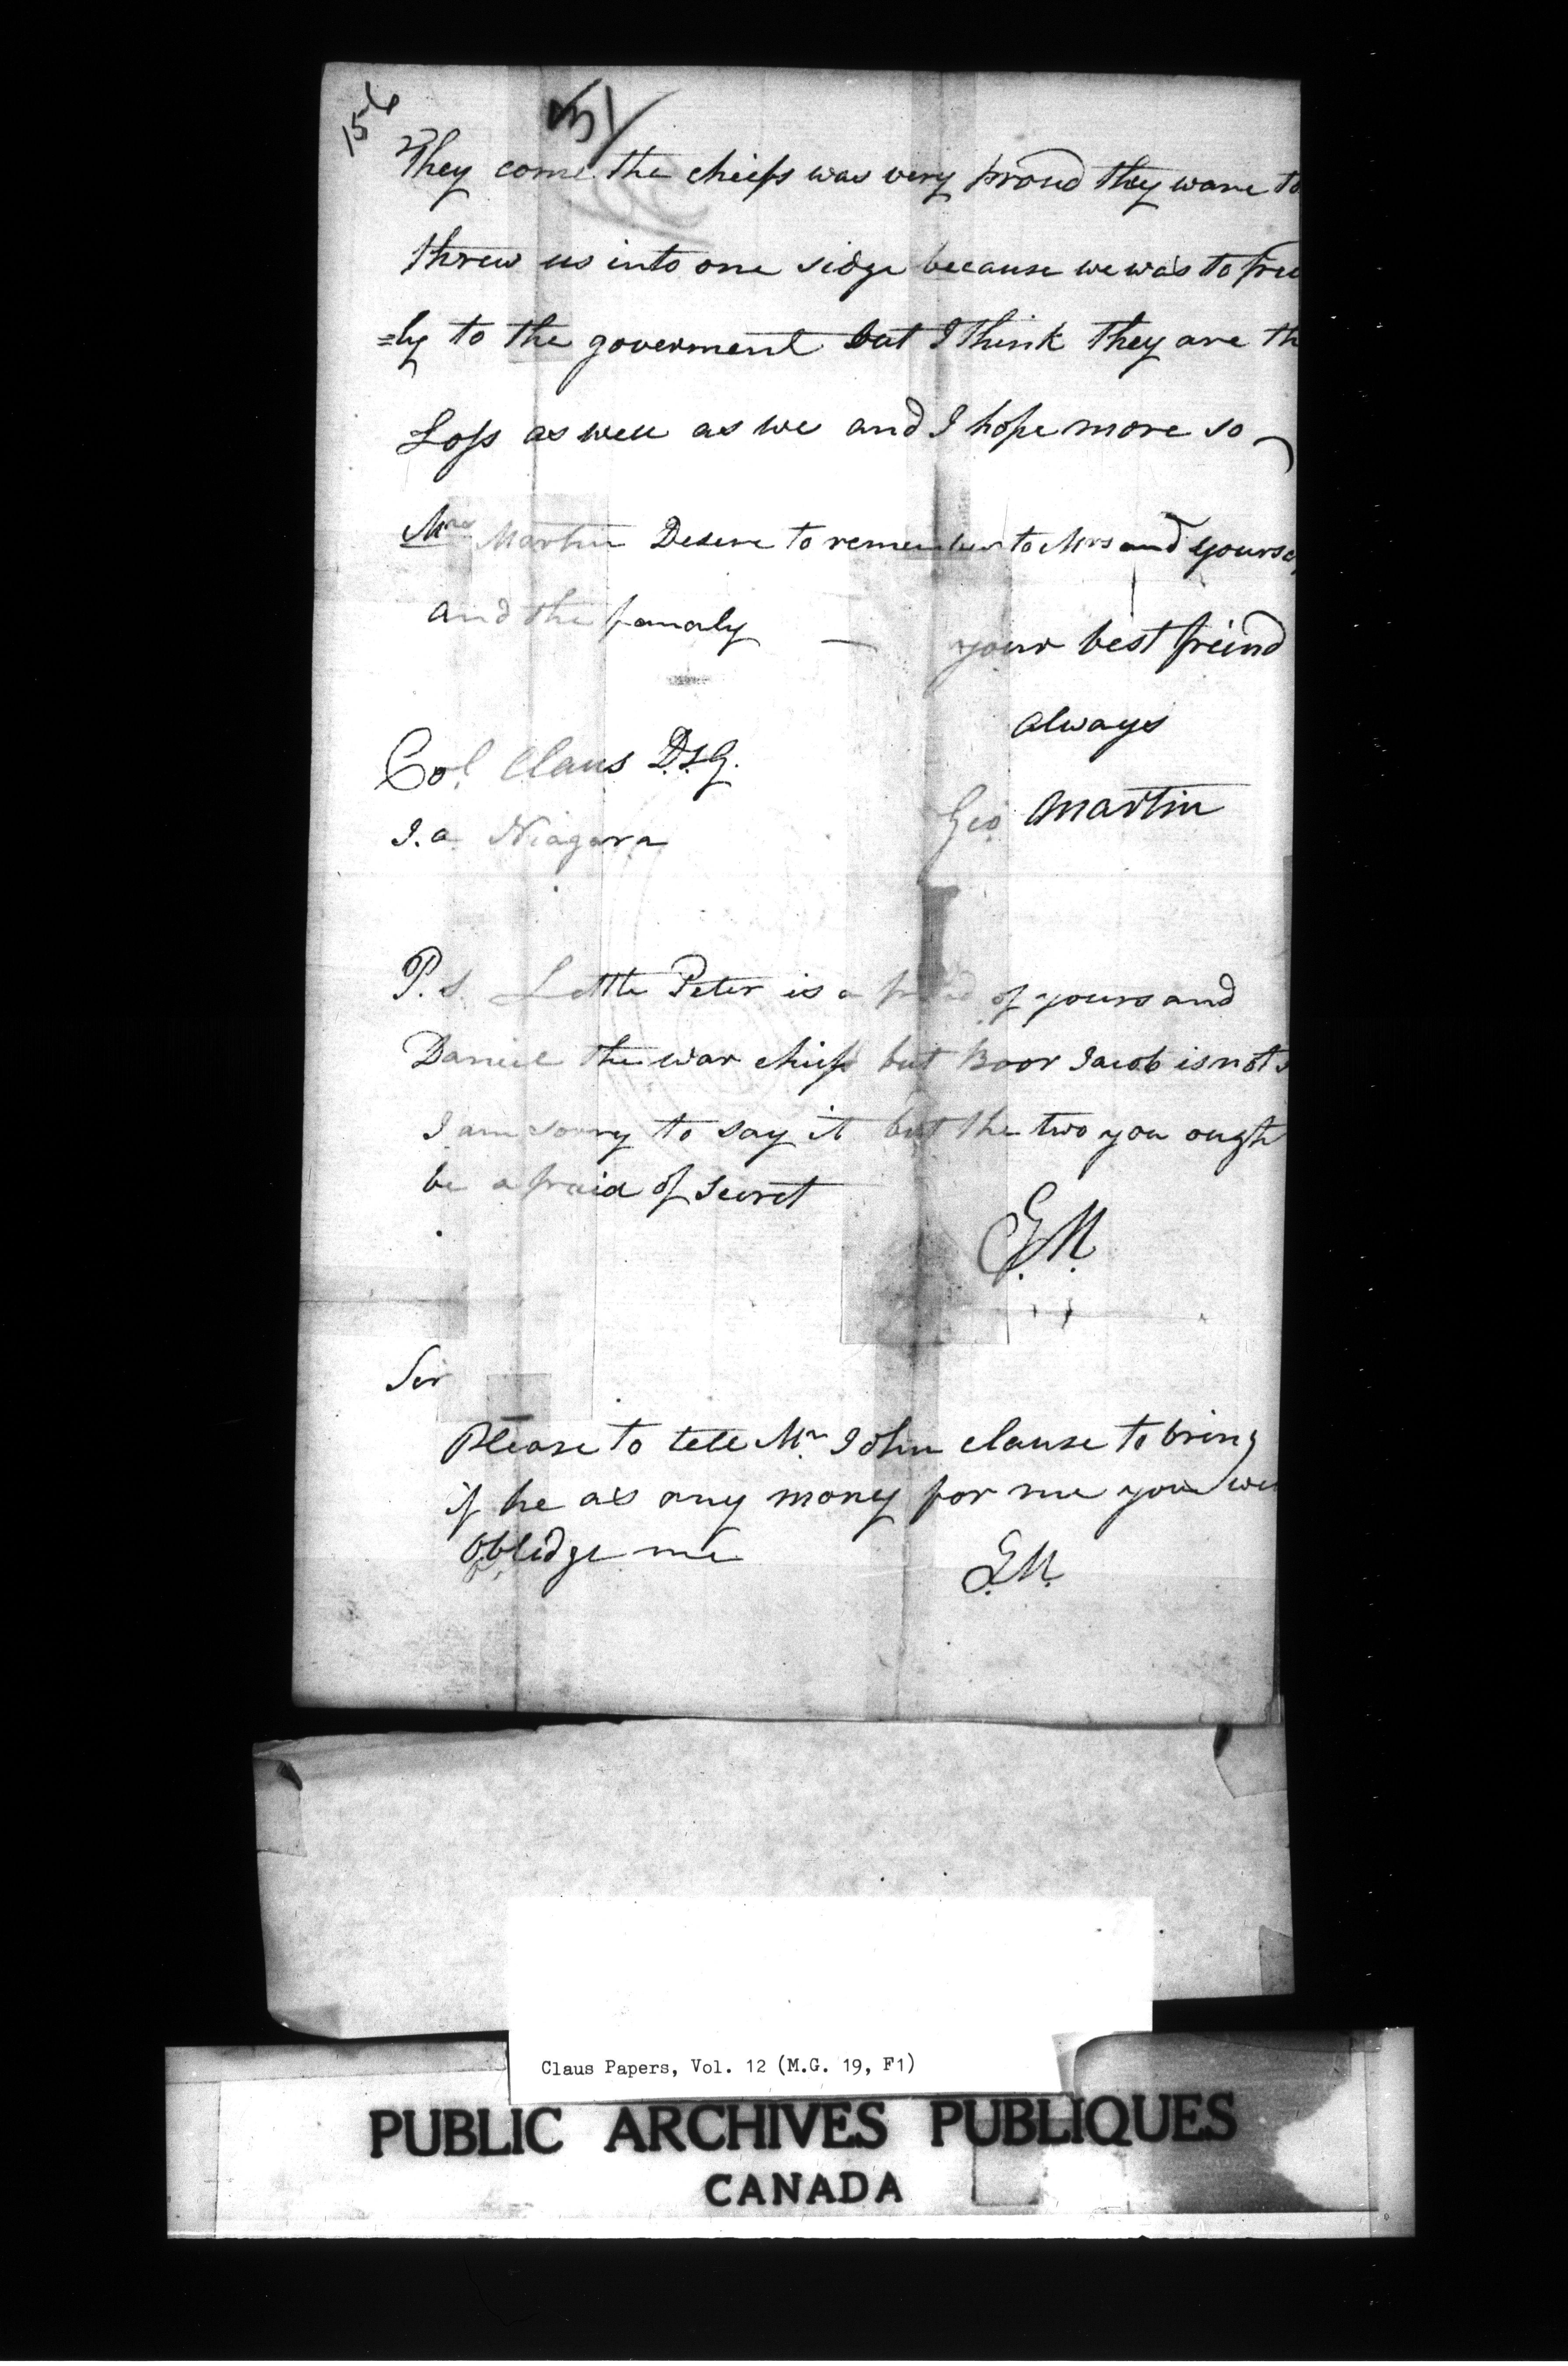 156
51
They come the chiefs was very proud they ware to
threw us into one sidge because we was to free
=ly to the goverment but I think they are th
Loss as well as we and I hope more so
Mrs Martin Desire to remember to Mrs and yourse
and the famaly — your best freind
always
Col. Claus D.S.G. Geo Martin
I. a. Niagara
P.s. Lettle Peter is a of yours and
Daniel the war chief but Poor Jacob is not s
I am sorry to say it but the two you ought
be afraid of secret
G.M.
Sir
Please to tell Mr John clause to bring
if he as any money for me you wi
Obblidge me G.M.
Claus Papers, Vol. 12 (M.G. 19, F1)
PUBLIC ARCHIVES PUBLIQUES
CANADA